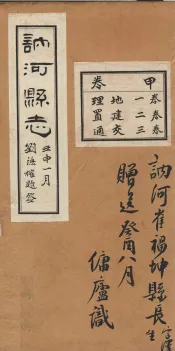 訥河縣志
五中一月
劉漢耀題签
甲卷
一卷
二卷
三卷
地理
建置
交通
訥河崔福坤縣長
字厚生
贈送 癸酉八月
傭廬識